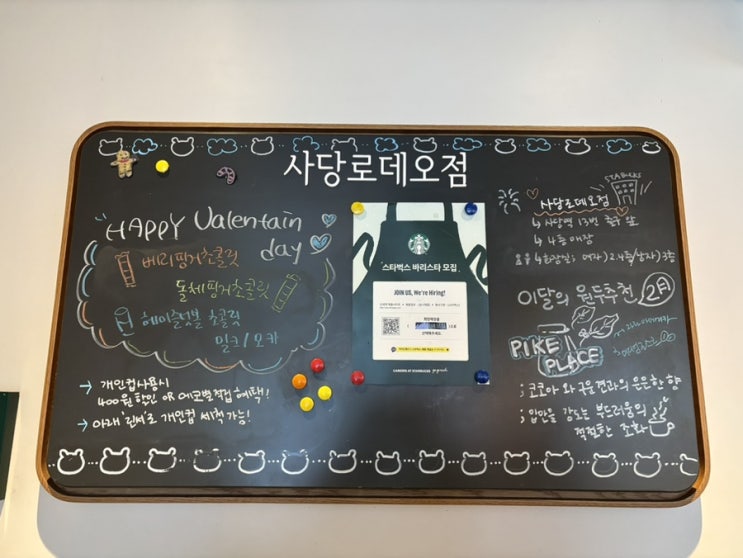 사당로데오점
HAPPY Valentain
day
베리핑거초콜릿
돌체핑거초콜릿
헤이즐넛볼 초콜릿
밀크/모카
→ 개인컵사용시
400원 할인 OR 에코별적립 혜택!
→ 아래 '린서'로 개인컵 세척가능!
스타벅스 바리스타 모집
JOIN US, We're Hiring!
CAREERS AT STARBUCKS
STARBUCKS
사당로데오점
↳ 사당역 13번 출구 앞
여자) 2.4층/남자) 3층
이달의 원두추천 2月
PIKE
PLACE
; 코코아 와 구운견과의 은은한 향
; 입안을 감도는 부드러움의
적절한 조화